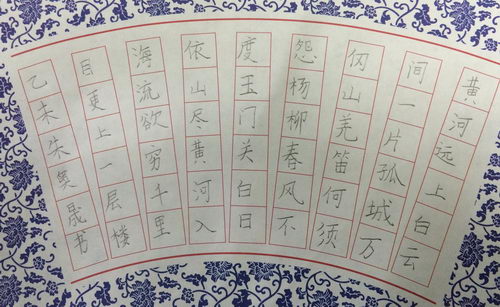 黄河远上白云
间一片孤城万
仞山羌笛何须
怨杨柳春风不
度玉门关白日
依山尽黄河入
海流欲穷千里
目更上一层楼
乙未朱晟书